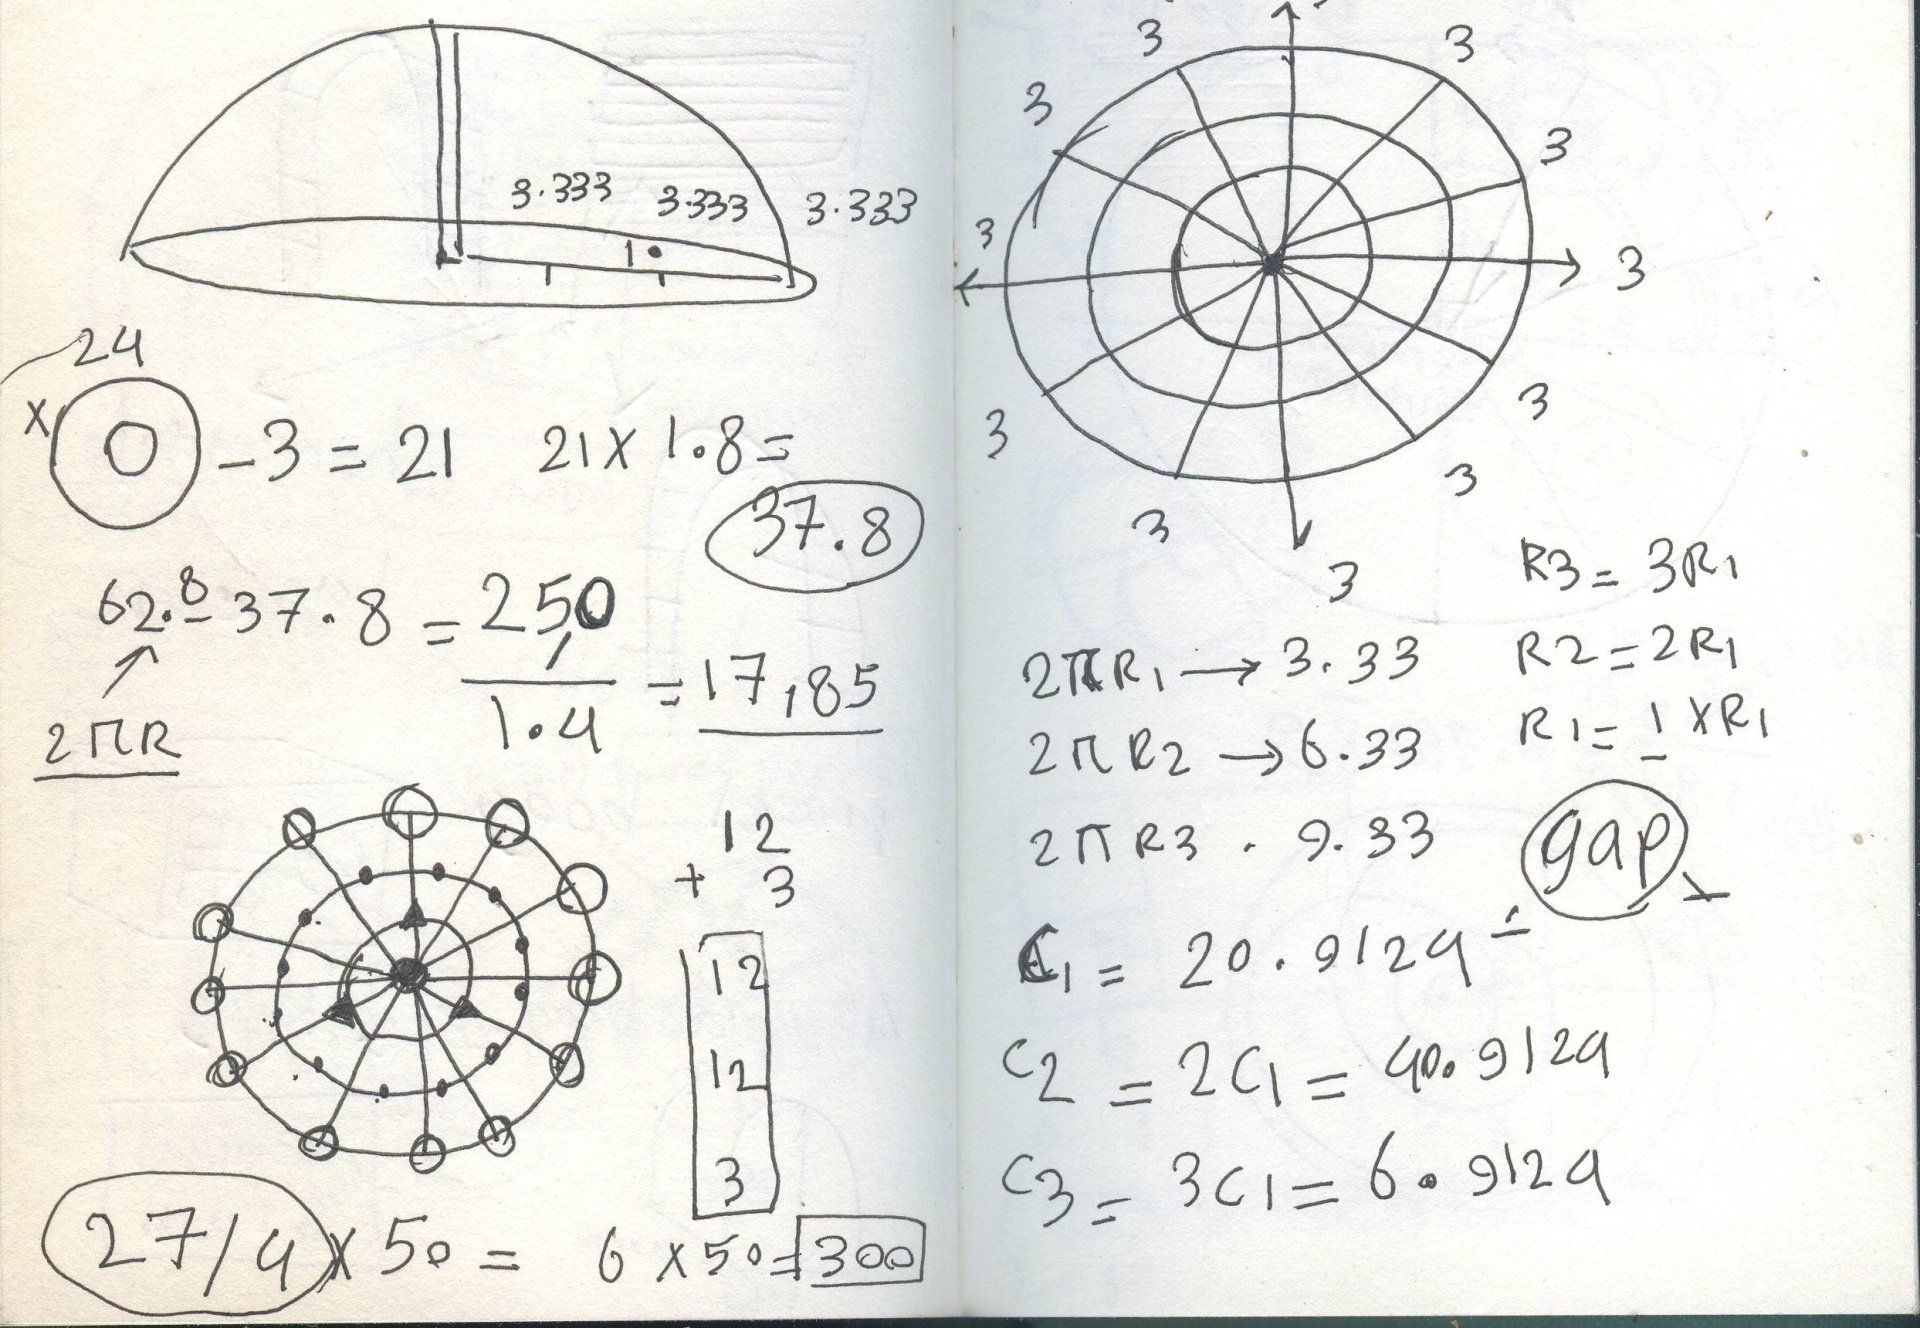 3.333 3.333 3.333
10
24
X O - 3 = 21 21 X 1.8 =
37.8
62.8 - 37.8 = 25,0
1.4
= 17,85
2πR
12
+ 3
12
12
3
27/4 X 50 = 6 X 50 = 300
3 3
3 3
3 3
3 3
3 3
3 3
R3 = 3R1
2πR1 → 3.33 R2 = 2R1
2πR2 → 6.33 R1 = 1 X R1
2πR3 . 9.33
gap
C1 = 20.9124
C2 = 2C1 = 40.9124
C3 = 3C1 = 6.9124